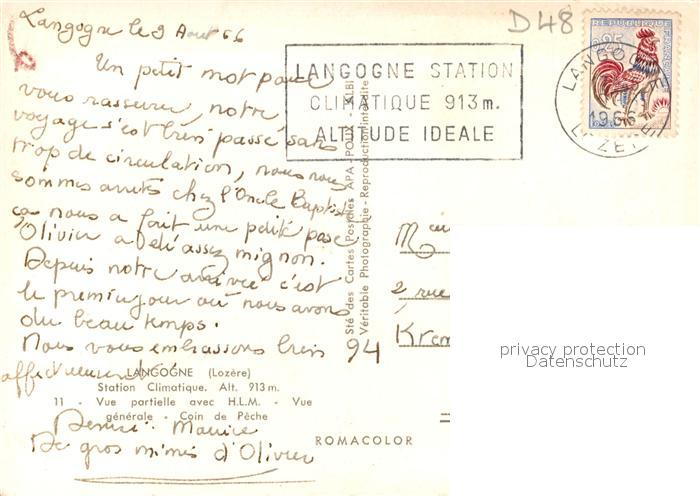 Langogne le 9 Aout 66
Un petit mot pour
vous rassurer, notre
voyage s'est bien passé sans
trop de circulation, nous nous
sommes arretés chez l'Oncle Baptiste
ça nous a fait une petite pose
Olivier a été assez mignon.
Depuis notre arrivée c'est
le premier jour où nous avons
du beau temps.
Nous vous embrassons bien
affectueusement
Denise Maurice
De gros mimis d'Olivier
LANGOGNE (Lozère)
Station Climatique. Alt. 913 m.
11 - Vue partielle avec H.L.M. - Vue
générale - Coin de Pêche
ROMACOLOR
Sté des Cartes Postales APA - POUX - ALBI
Véritable Photographie - Reproduction interdite
D48
LANGOGNE STATION
CLIMATIQUE 913 m.
ALTITUDE IDEALE
REPUBLIQUE FRANÇAISE
0,25
LANGOGNE
1966
LOZERE
2, rue
Krem
94
privacy protection
Datenschutz